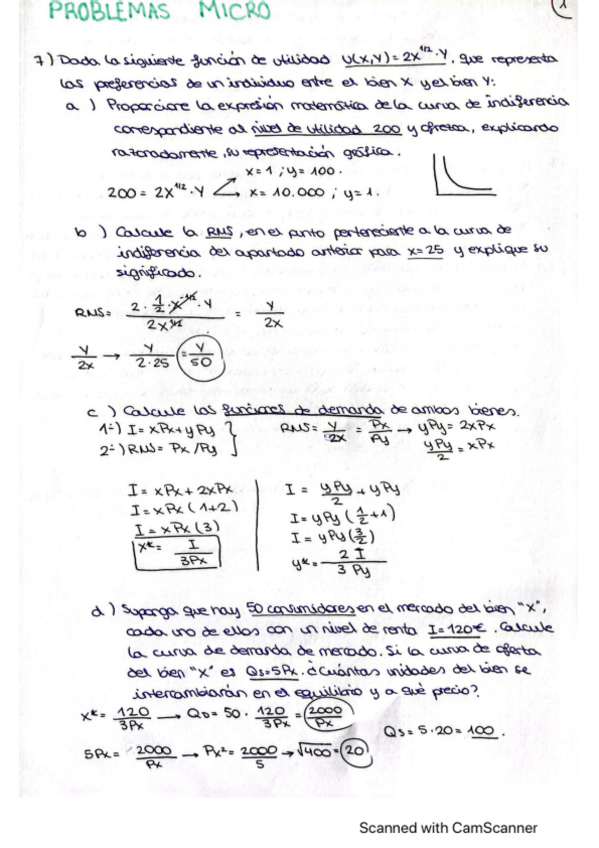 PROBLEMAS MICRO
1
7) Dada la siguiente función de utilidad U(X,Y) = 2X^1/2 · Y, que representa
las preferencias de un individuo entre el bien X y el bien Y:
a) Proporcione la expresión matemática de la curva de indiferencia
correspondiente al nivel de utilidad 200 y ofrezca, explicando
razonadamente, su representación gráfica.
x=1 ; y=100.
200 = 2X^1/2 · Y
x=10.000 ; y=1.
b) Calcule la RMS, en el punto perteneciente a la curva de
indiferencia del apartado anterior para x=25 y explique su
significado.
RMS = 2 · 1/2 · X^-1/2 · Y / 2X^1/2 = Y / 2X
Y/2X → Y/2·25 = Y/50
c) Calcule las funciones de demanda de ambos bienes.
1º) I = xPx + yPy
2º) RMS = Px/Py
RMS = Y/2X = Px/Py → yPy = 2xPx
yPy/2 = xPx
I = xPx + 2xPx
I = xPx (1+2)
I = xPx (3)
x* = I / 3Px
I = yPy/2 + yPy
I = yPy (1/2 + 1)
I = yPy (3/2)
y* = 2 I / 3 Py
d) Suponga que hay 50 consumidores en el mercado del bien "x",
cada uno de ellos con un nivel de renta I=120€. Calcule
la curva de demanda de mercado. Si la curva de oferta
del bien "x" es Qs=5Px. ¿Cuántas unidades del bien se
intercambiarán en el equilibrio y a qué precio?
x* = 120/3Px → QD = 50 · 120/3Px = 2000/Px
Qs = 5·20 = 100.
5Px = 2000/Px → Px² = 2000/5 → √400 = 20
Scanned with CamScanner